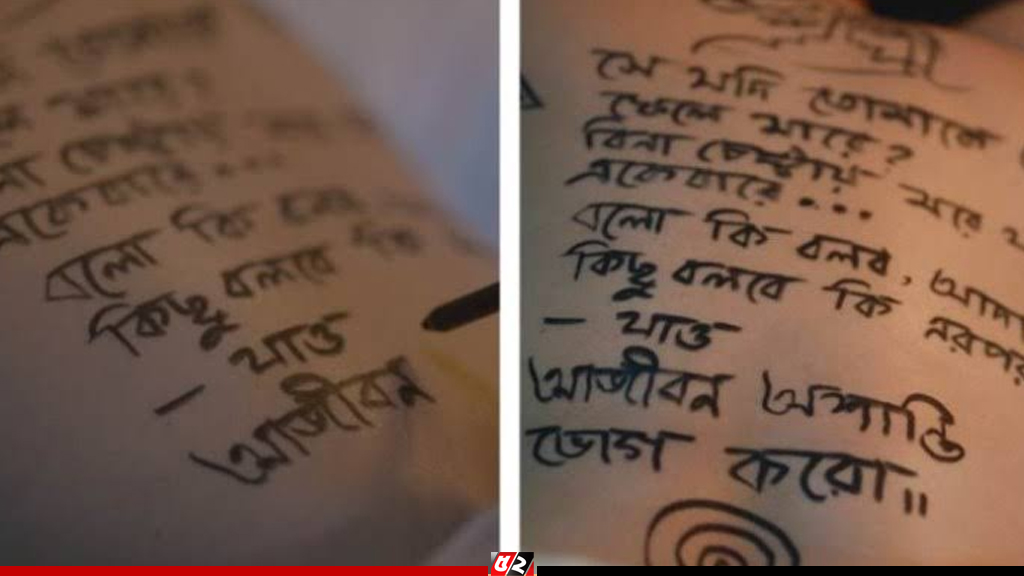 চেষ্টায়
একেবারে...
বলো কি
কিছু বলবে কি
– যাও
আজীবন
সে যদি তোমাকে
মারে?
বিনা চেষ্টায় মরে
একেবারে...
বলো কি বলব,
কিছু বলবে কি
– যাও
আজীবন অশান্তি
ভোগ করো॥